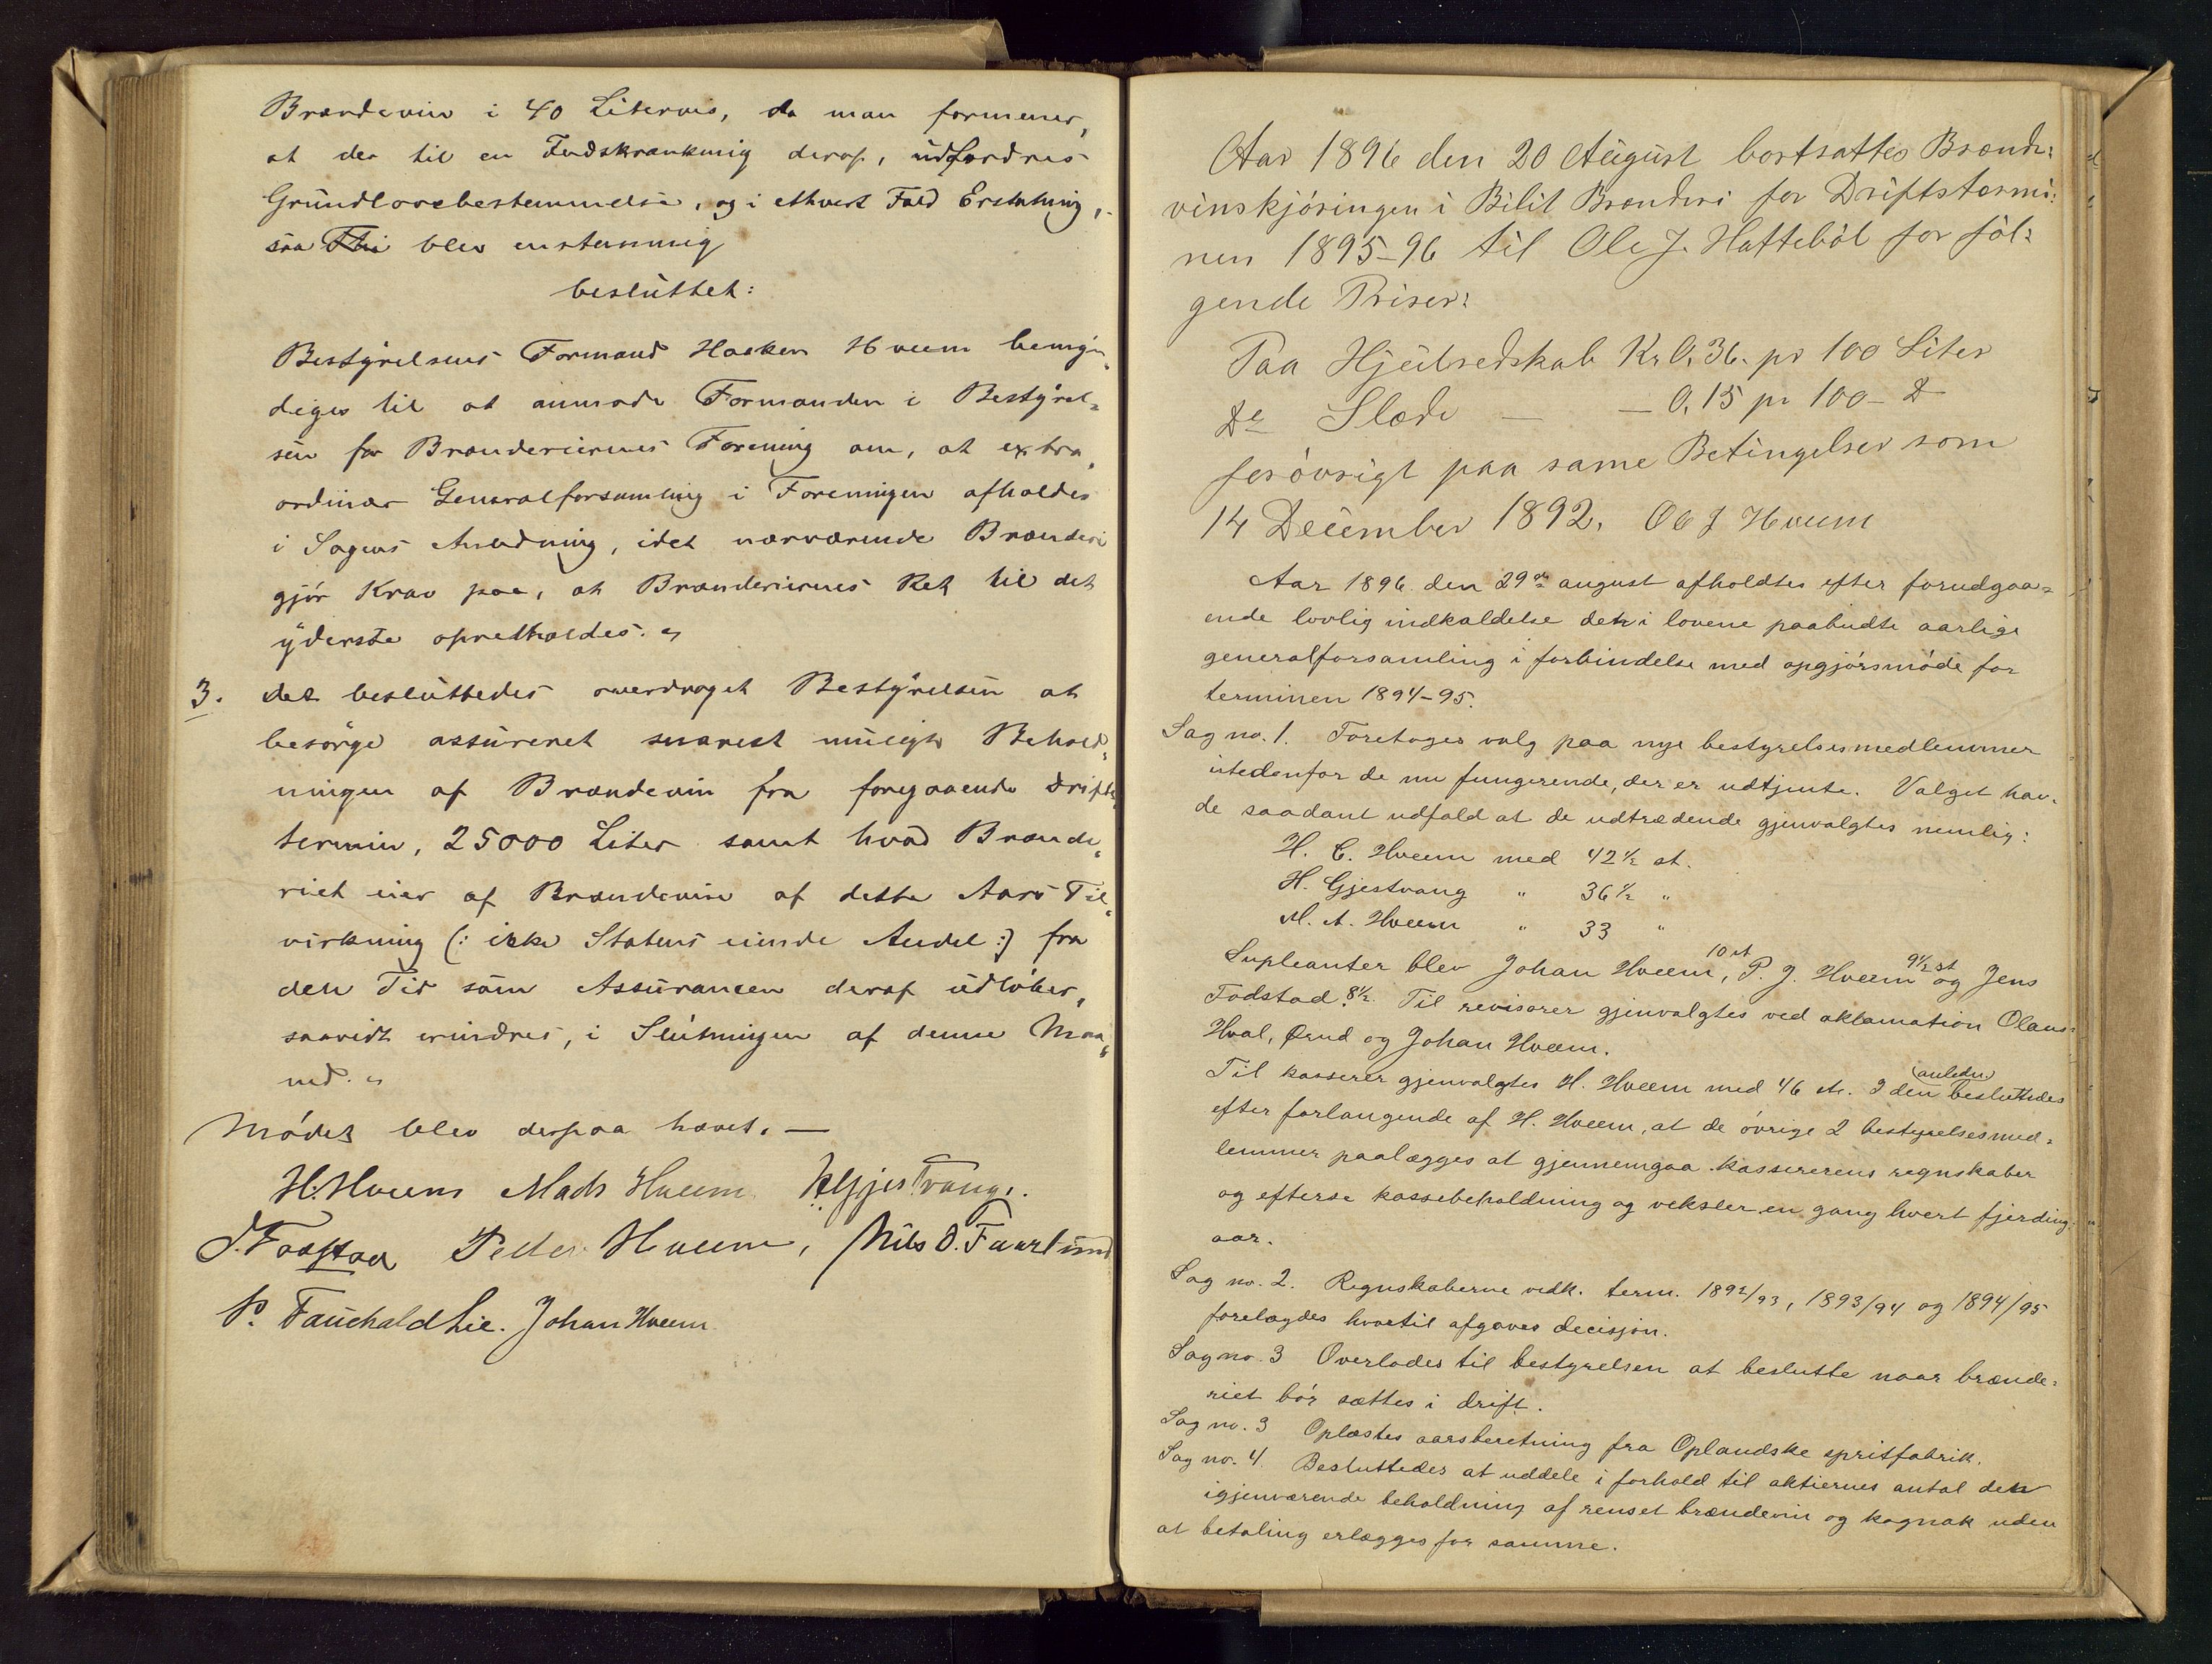 Brændevin i 40 Litervis, da man formener,
at der til en Indskrænkning deraf, udfordres
Grundlovsbestemmelse, og i ethvert Fald Erstatning,
saa blev enstemmig
besluttet:
Bestyrelsens Formand Haaken Hveem bemyn„
diges til at anmode Formanden i Bestyrel„
sen for Brænderiernes Forening om, at extra„
ordinær Generalforsamling i Foreningen afholdes
i Sagens Anledning, idet nærværende Brænderi
gjør Krav paa, at Brænderiernes Ret til det
yderste opretholdes. „
3. det besluttedes overdraget Bestyrelsen at
besørge assureret snarest muligt Behold„
ningen af Brændevin fra foregaaende Drifts
termin, 25000 Liter samt hvad Brænde„
riet eier af Brændevin af dette Aars Til„
virkning (: ikke Statens eiende Andel :) fra
den Tid som Assurancen deraf udløber,
saavidt erindres, i Slutningen af denne Maa„
ned. „
Mødet blev derpaa hævet. —
H. Hveem Mads Hveem H. Gjestvang.
J. Fodstad Peder Hveem, Nils O. Faarlund
P. Fauchald Lie. Johan Hveem.
Aar 1896 den 20 August bortsattes Brænde:
vinskjøringen i Bilit Brænderi for Driftstermi:
nen 1895–96 til Ole J. Haftebøl for føl:
gende Priser:
Paa Hjulredskab Kr 0,36. pr 100 Liter
Do Slæde — — 0,15 pr 100 – D
forøvrigt paa same Betingelser som
14 December 1892. Ole J Hveem
Aar 1896 den 29de august afholdtes efter forudgaa=
ende lovlig indkaldelse den i lovene paabudte aarlige
generalforsamling i forbindelse med opgjørsmøde for
terminen 1894–95.
Sag no. 1. Foretoges valg paa nye bestyrelsesmedlemmer
istedenfor de nu fungerende, der er udtjente. Valget hav=
de saadant udfald at de udtrædende gjenvalgtes nemlig:
H. C. Hveem med 42½ st.
H. Gjestvang „ 36½ „
M. A. Hveem „ 33 „
Supleanter blev Johan Hveem 10 st, P. J. Hveem 9½ st og Jens
Fodstad 8½. Til revisorer gjenvalgtes ved aklamation Olaus
Hval, Ørud og Johan Hveem.
Til kasserer gjenvalgtes H. Hveem med 46 st. I den (anledn) besluttedes
efter forlangende af H. Hveem, at de øvrige 2 bestyrelsesmed=
lemmer paalægges at gjennemgaa kassererens regnskaber
og efterse kassebeholdning og veksler en gang hvert fjerding=
aar.
Sag no. 2. Regnskaberne vedk. term. 1892/93, 1893/94 og 1894/95
forelagdes hvortil afgaves decisjon.
Sag no. 3 Overlodes til bestyrelsen at beslutte naar brænde=
riet bør sættes i drift.
Sag no. 3 Oplæstes aarsberetning fra Oplandske spritfabrik.
Sag no. 4. Besluttedes at uddele i forhold til aktiernes antal den
igjenværende beholdning af renset brændevin og kognak uden
at betaling erlægges for samme.